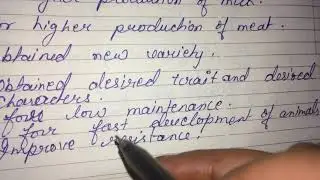 production of milk.
or higher production of meat.
btained new variety.
Obtained desired trait and desired
Characters.
low maintenance.
for fast development of animals
Improve resistance.